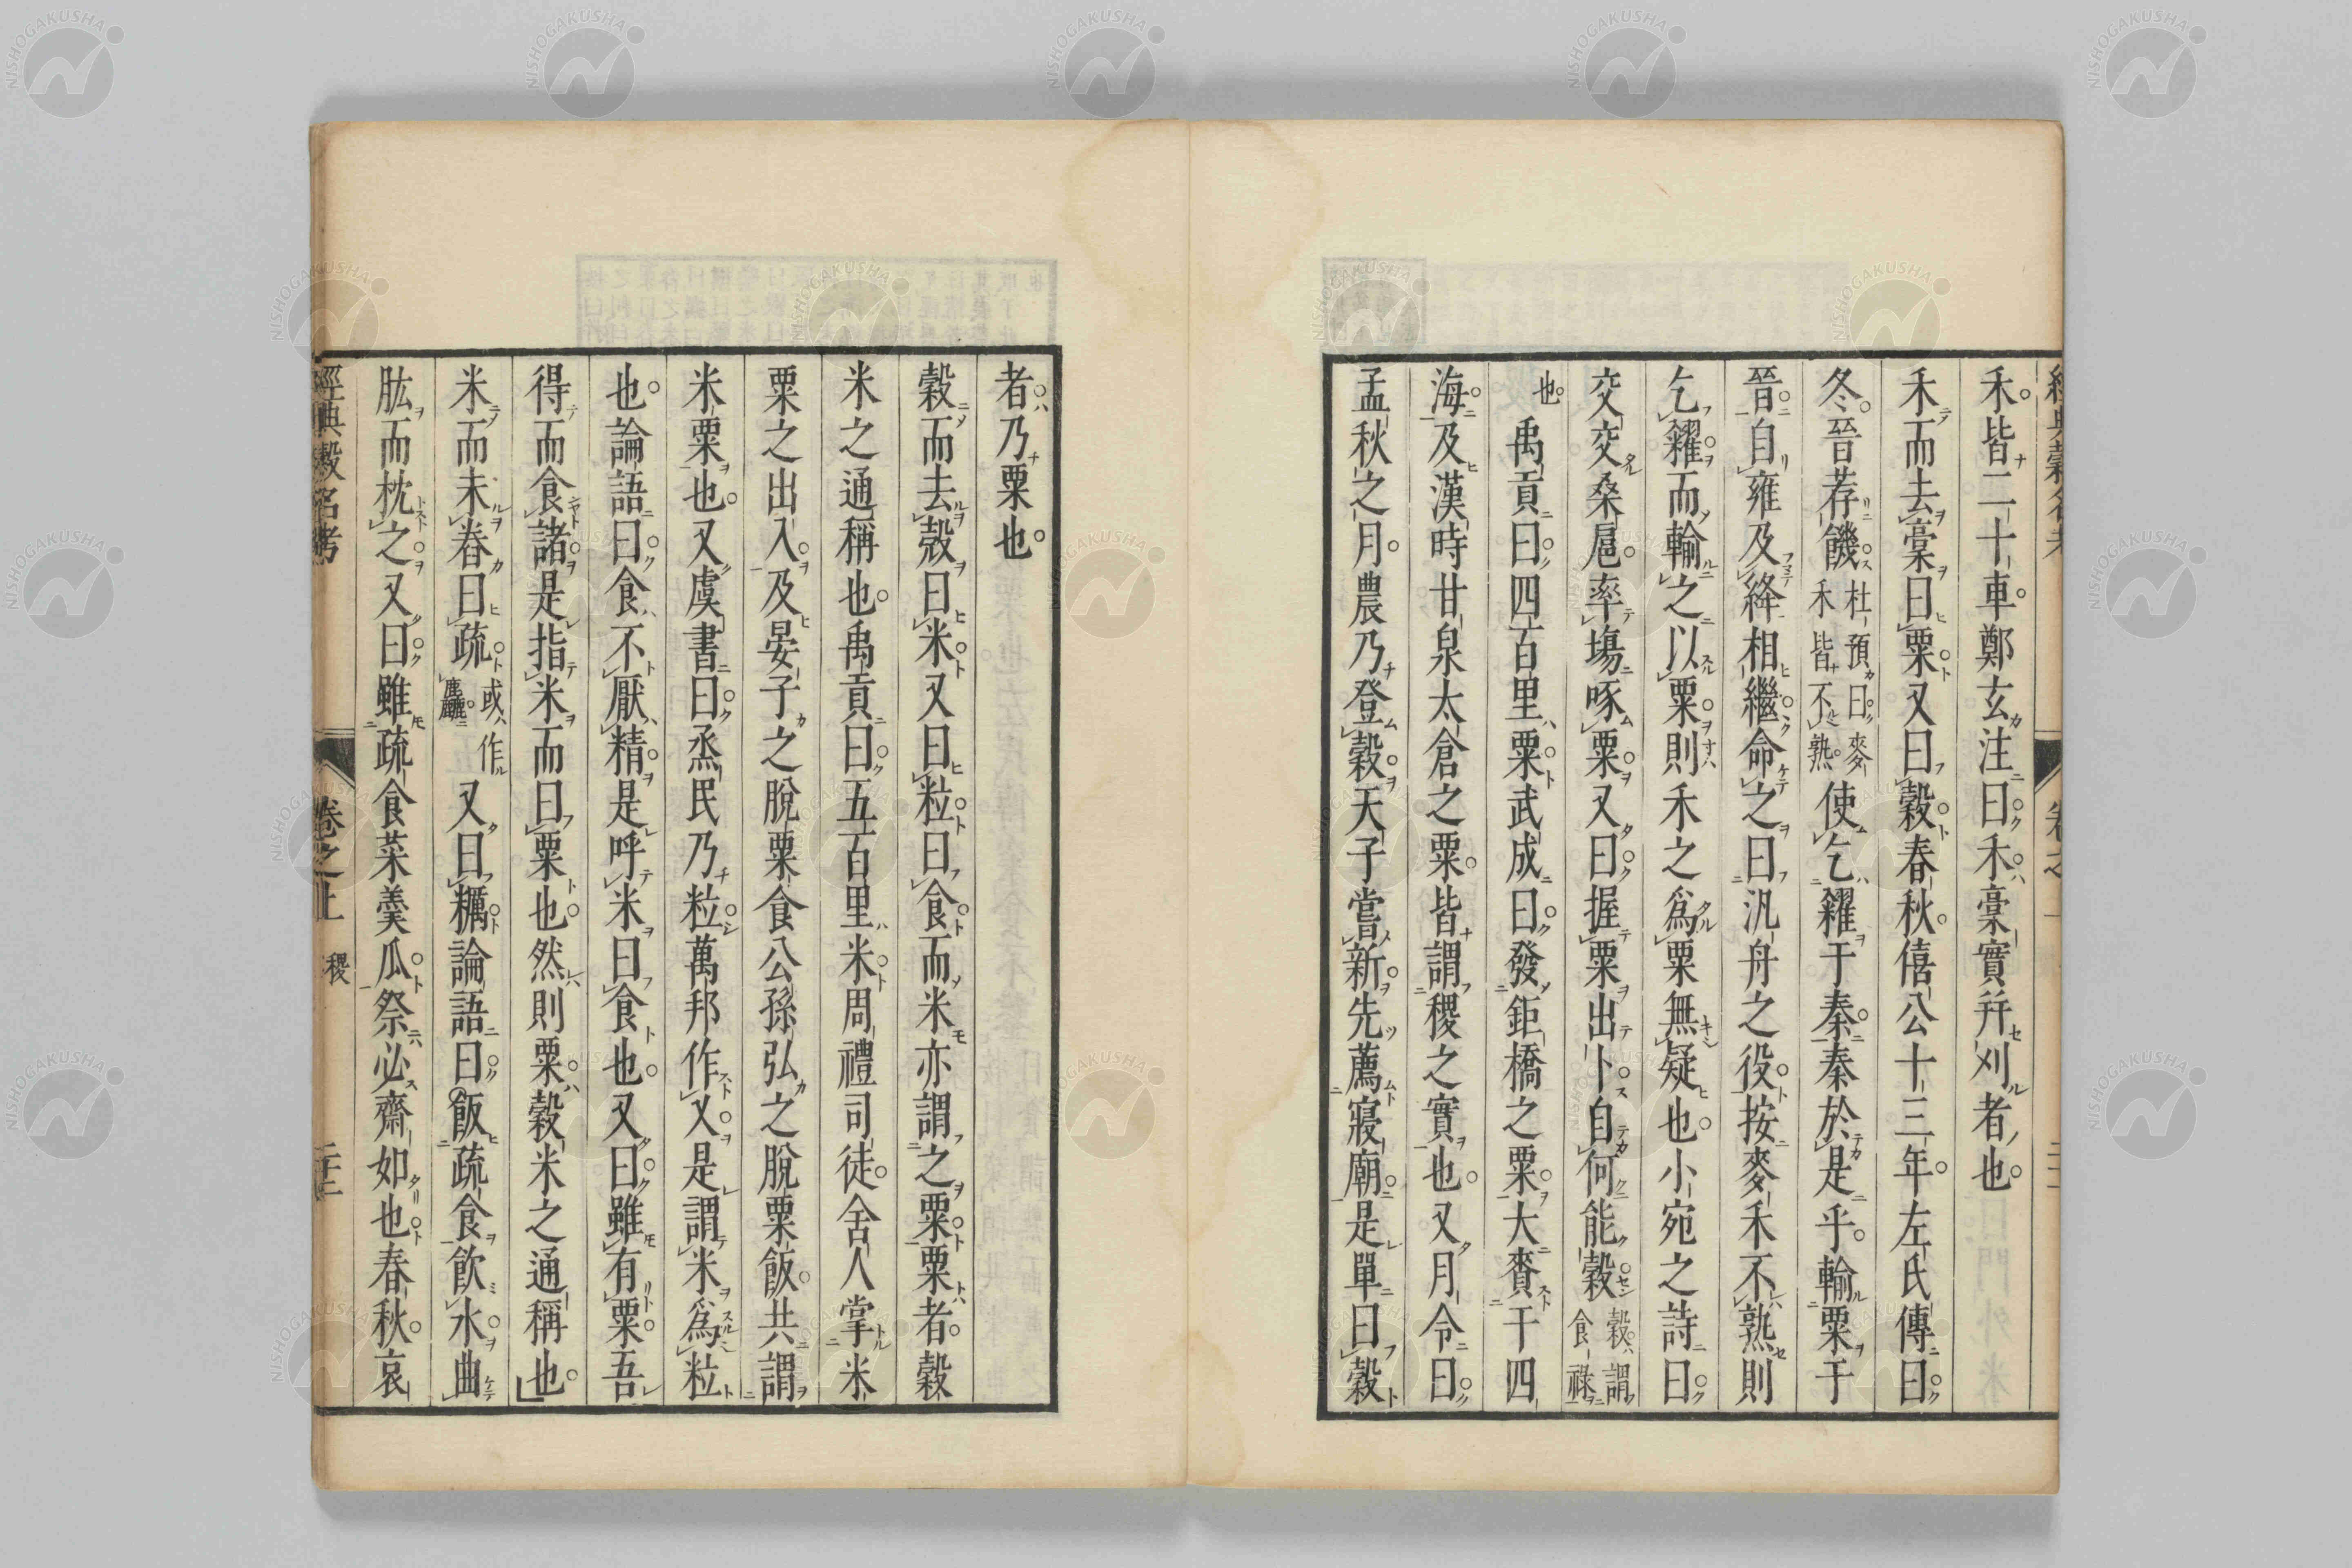 禾皆二十車鄭玄注曰禾稾實幷刈者也
禾而去稾曰粟又曰穀春秋僖公十三年左氏傳曰
冬晉荐饑杜預曰麥禾皆不熟使乞糴于秦秦於是乎輸粟于
晉自雍及絳相繼命之曰汎舟之役按麥禾不熟則
乞糴而輸之以粟則禾之爲粟無疑也小宛之詩曰
交交桑扈率場啄粟又曰握粟出卜自何能穀穀謂食祿
也禹貢曰四百里粟武成曰發鉅橋之粟大賚于四
海及漢時甘泉太倉之粟皆謂稷之實也又月令曰
孟秋之月農乃登穀天子嘗新先薦寢廟是單曰穀
者乃粟也
穀而去殼曰米又曰粒曰食而米亦謂之粟粟者穀
米之通稱也禹貢曰五百里米周禮司徒舍人掌米
粟之出入及晏子之脫粟食公孫弘之脫粟飯共謂
米粟也又虞書曰烝民乃粒萬邦作乂是謂米爲粒
也論語曰食不厭精是呼米曰食也又曰雖有粟吾
得而食諸是指米而曰粟也然則粟穀米之通稱也
米而未舂曰疏或作麤又曰糲論語曰飯疏食飲水曲
肱而枕之又曰雖疏食菜羹瓜祭必齋如也春秋哀
經典穀名考 卷之上 稷